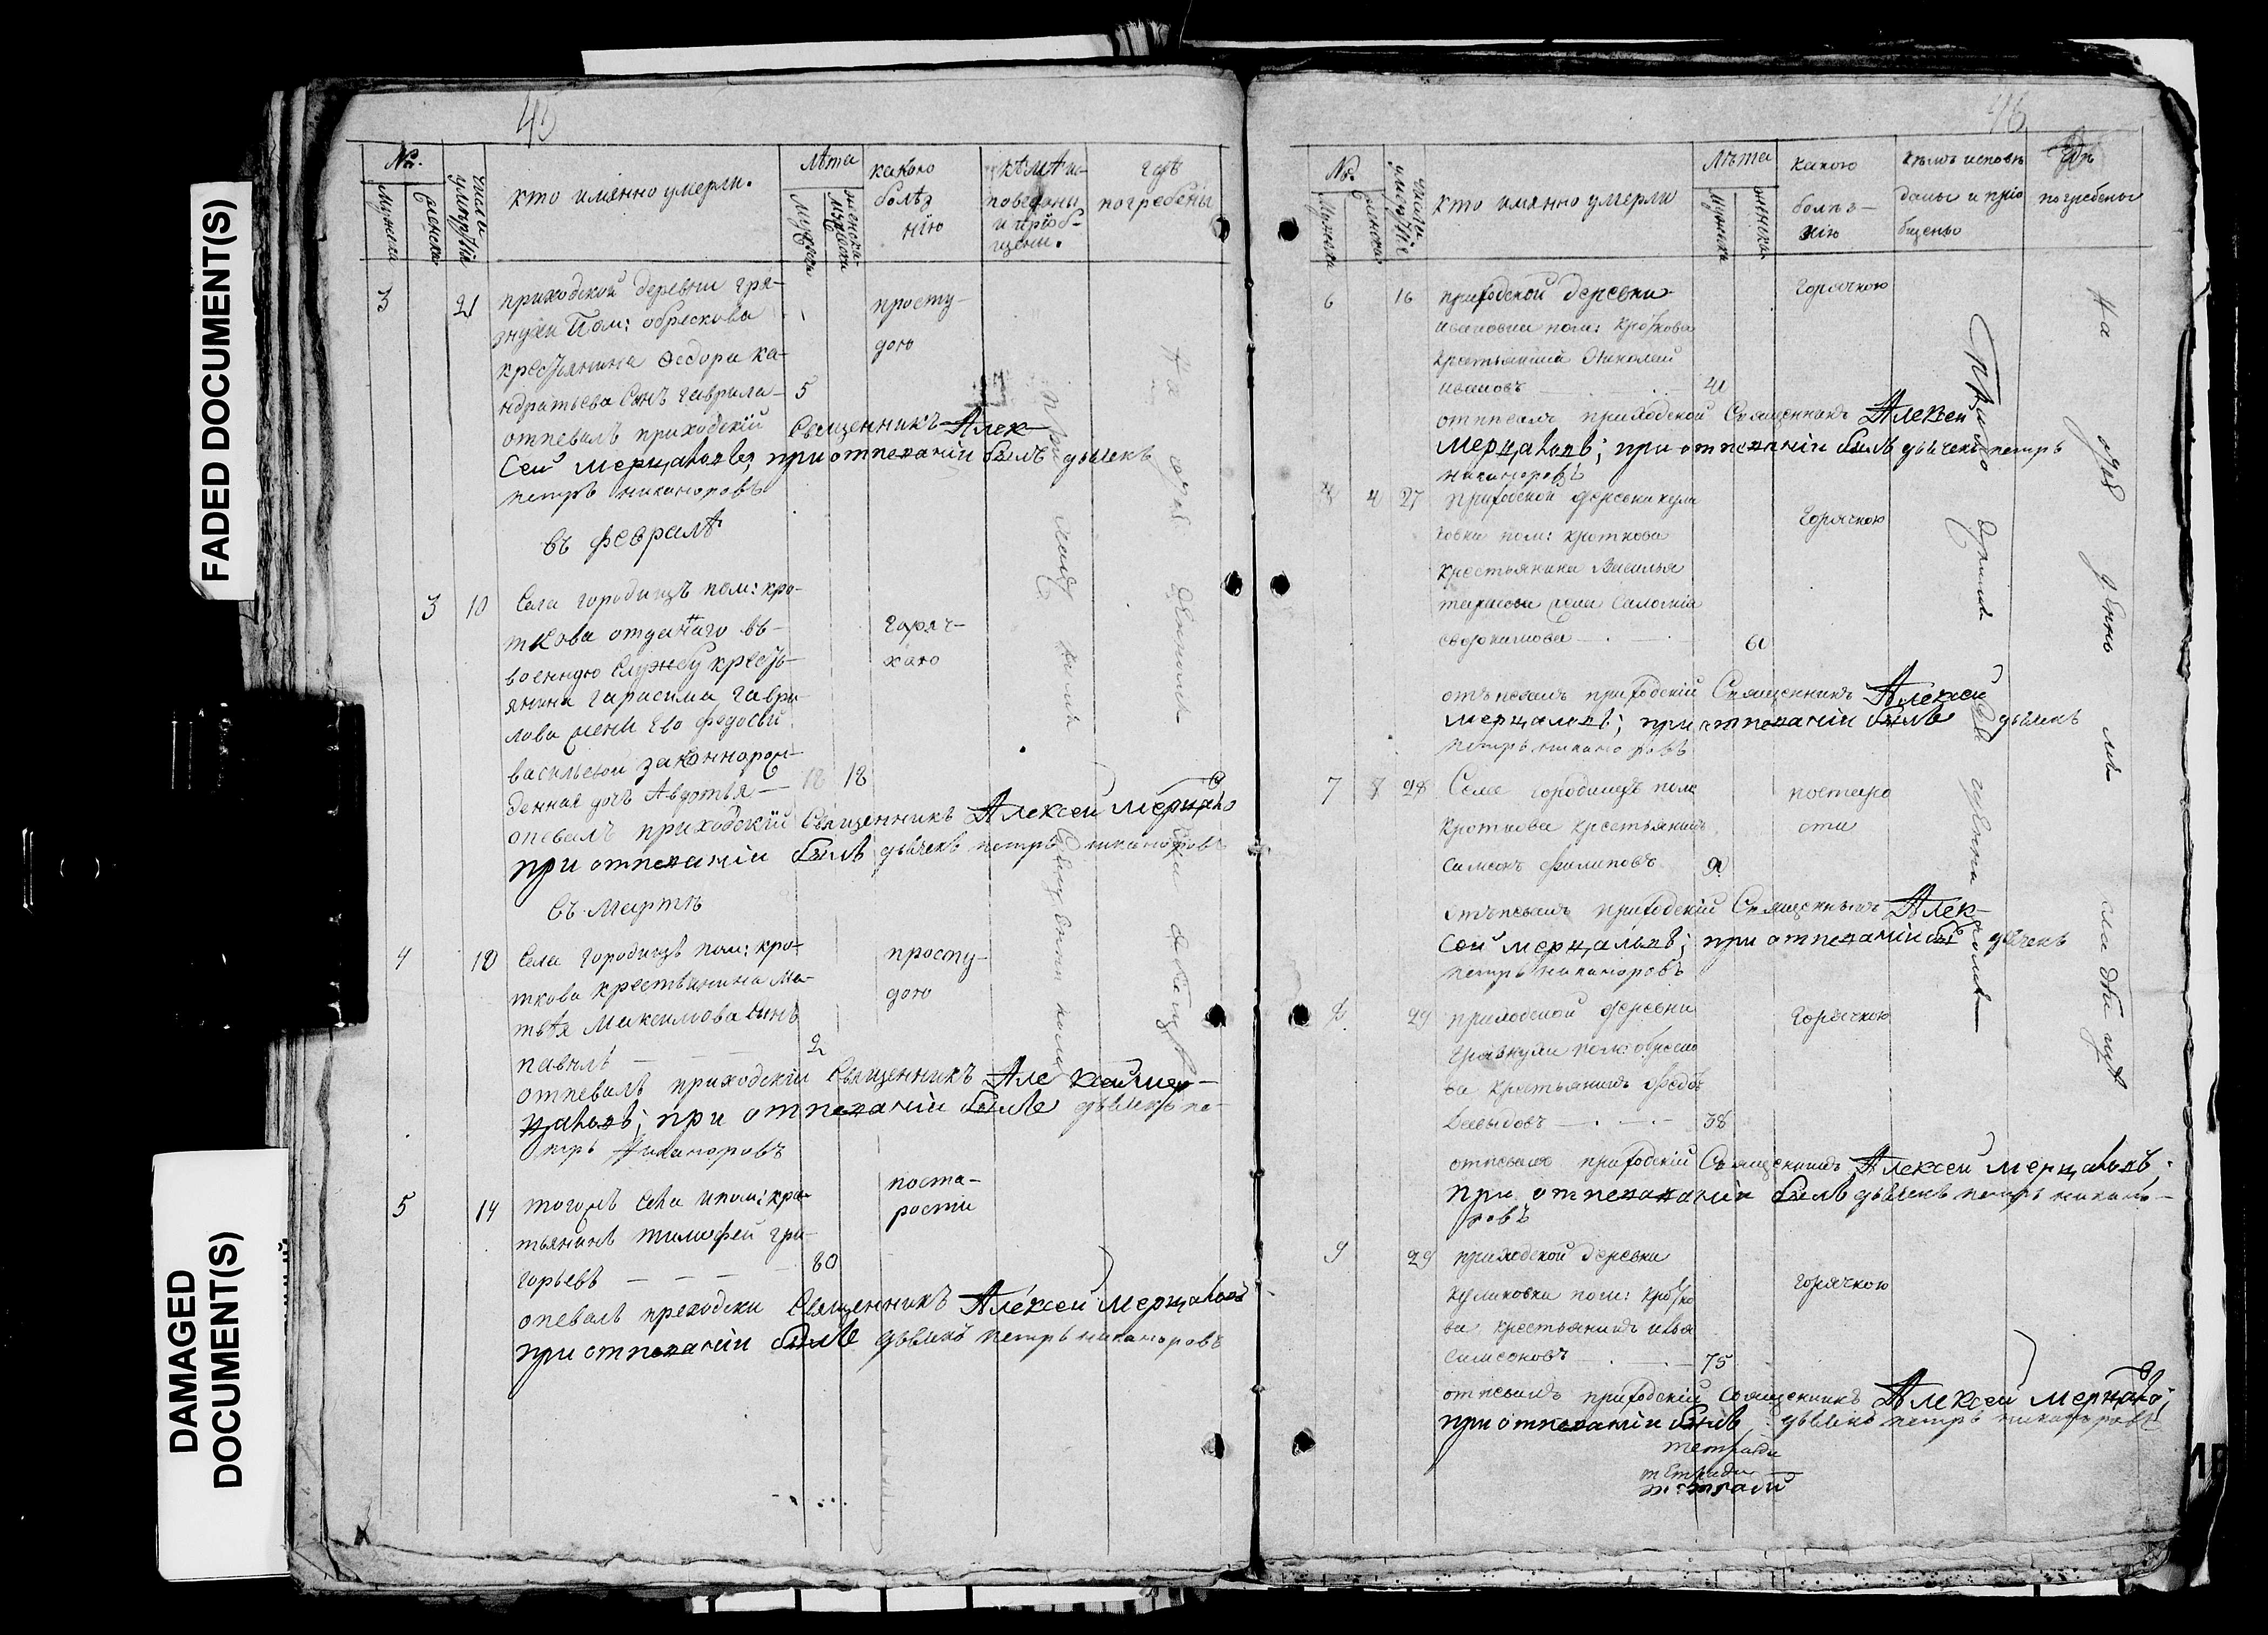 FADED DOCUMENT(S)
DAMAGED
DOCUMENT(S)
45
№.
мужеска
женска
числа умертвія
кто имянно умерли.
лѣта
мужеска
женска
какою
болѣз
нію
кѣм и-
поведаны
и пріоб-
щены.
гдѣ
погребены
3 21 приходской деревни гря-
знухи Пом: обрескова
крестьянина Федора ка-
ндратьева Сынъ гаврила- 5
просту-
дою
отпевалъ приходскїй Священникъ Алек-
сеи мерцаловъ, при отпевании былъ дьячекъ
петръ никаноровъ
въ февралѣ
3 10 Села городищъ пом: кро-
ткова отданнаго въ-
военную службу кресть-
янина гарасима гаври-
лова жены его федосьи
васильевои законнорож-
денная дочь Авдотья — 12
гаряч-
кою
опевалъ приходскїй Священникъ Алексеи мерцало
при отпевании былъ дьячекъ петръ никаноровъ
въ мартѣ
4 10 Села городищъ пом: кро-
ткова крестьянина ма-
твѣя Максимова сынъ
павилъ — — — 2
просту-
дою
отпевалъ приходскїи Священникъ Алексеи мер-
цаловъ; при отпевании былъ дьячекъ пе-
тръ Никаноровъ
5 14 тогожъ села и пом: кре-
тьянинъ тимофеи гри-
горьевъ — — — — 80
поста-
рости
опевалъ преходски Священникъ Алексеи мерцаловъ
при отпевании былъ дьячекъ петръ никаноровъ
на
46
№.
мужеска
женска
числа умертвія
кто имянно умерли
лѣта
мужеска
женска
какою
болѣз-
нію
кѣмъ исповѣ
даны и прїо
бщены
гдѣ
погребены
6 16 приходской деревни
ивановки пом: кроткова
крестьянинъ Николай
ивановъ — 40
Горячкою
отпевалъ приходской Священникъ Алексеи
мерцаловъ; при отпевании былъ дьячекъ петръ
никаноровъ
4 27 Приходской деревни кули
ковки пом: кроткова
крестьянина Василья
тарасова жена Саломия
евдокимова — 60
Горячкою
отъпевалъ приходскїй Священникъ Алексеи
мерцаловъ; при отпевании былъ дьячекъ
петръ никаноровъ
7 28 Села городищъ пом
кроткова крестьянинъ
самсонъ филиповъ 90
постаро
сти
отъпевалъ приходскїй Священникъ Алек-
сеи мерцаловъ; при отпевании бъ дьячекъ
петръ никаноровъ
8 29 приходской деревни
грязнухи пом: обреско
ва крестьянинъ федоръ
Давыдовъ — 38
Горячкою
отпевалъ приходскїй Священникъ Алексеи мерцаловъ;
при отпевании былъ дьячекъ петръ никано-
ровъ
9 29 приходской деревни
куликовки пом: кротко
ва крестьянинъ илья
самсоновъ — 75
горячкою
отпевалъ приходскїй Священникъ Алексеи мерцало;
при отпевании былъ дьячекъ петръ никаноровъ
тетради
тетради
тетради
на